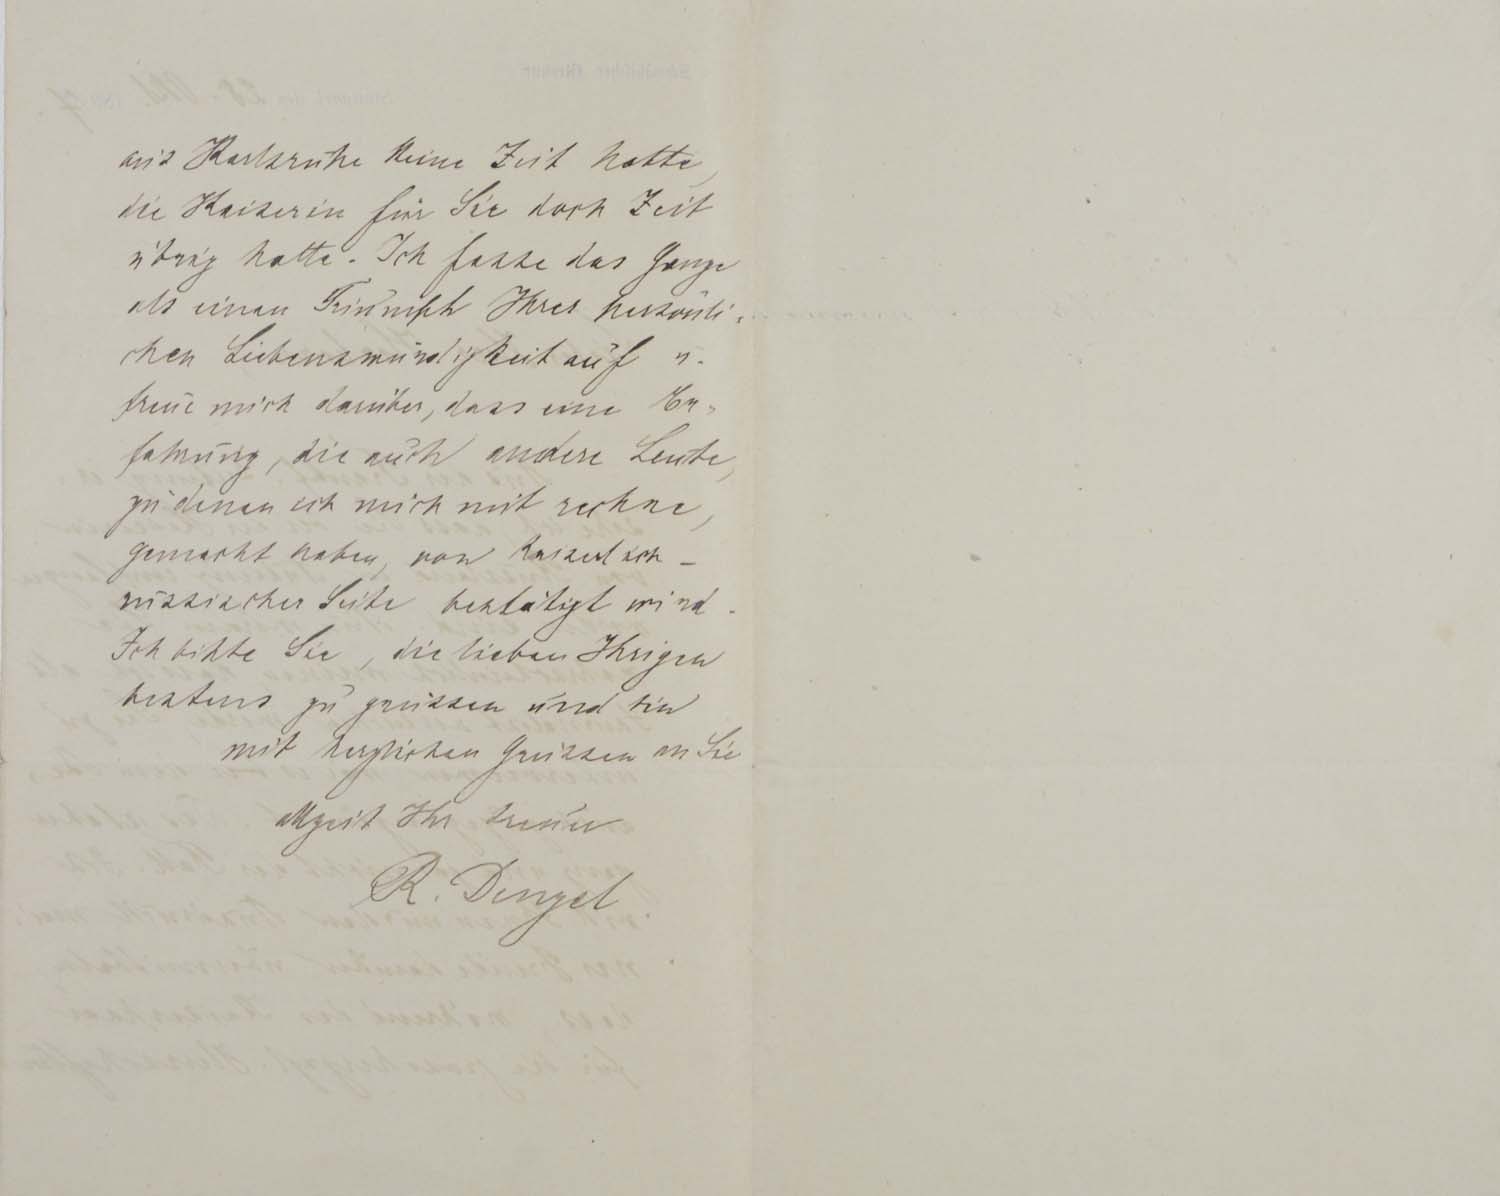 aus Karlsruhe keine Zeit hatte,
die Kaiserin für Sie doch Zeit
übrig hatte. Ich fasse das Ganze
als einen Triumph Ihrer persönli-
chen Liebenswürdigkeit auf u.
freue mich darüber, dass eine Er-
fahrung, die auch andere Leute,
zu denen ich mich mit rechne,
gemacht haben, von kaiserlich-
russischer Seite bestätigt wird.
Ich bitte Sie, die lieben Ihrigen
bestens zu grüssen und bin
mit herzlichen Grüssen an Sie
allzeit Ihr treuer
R. Dengel